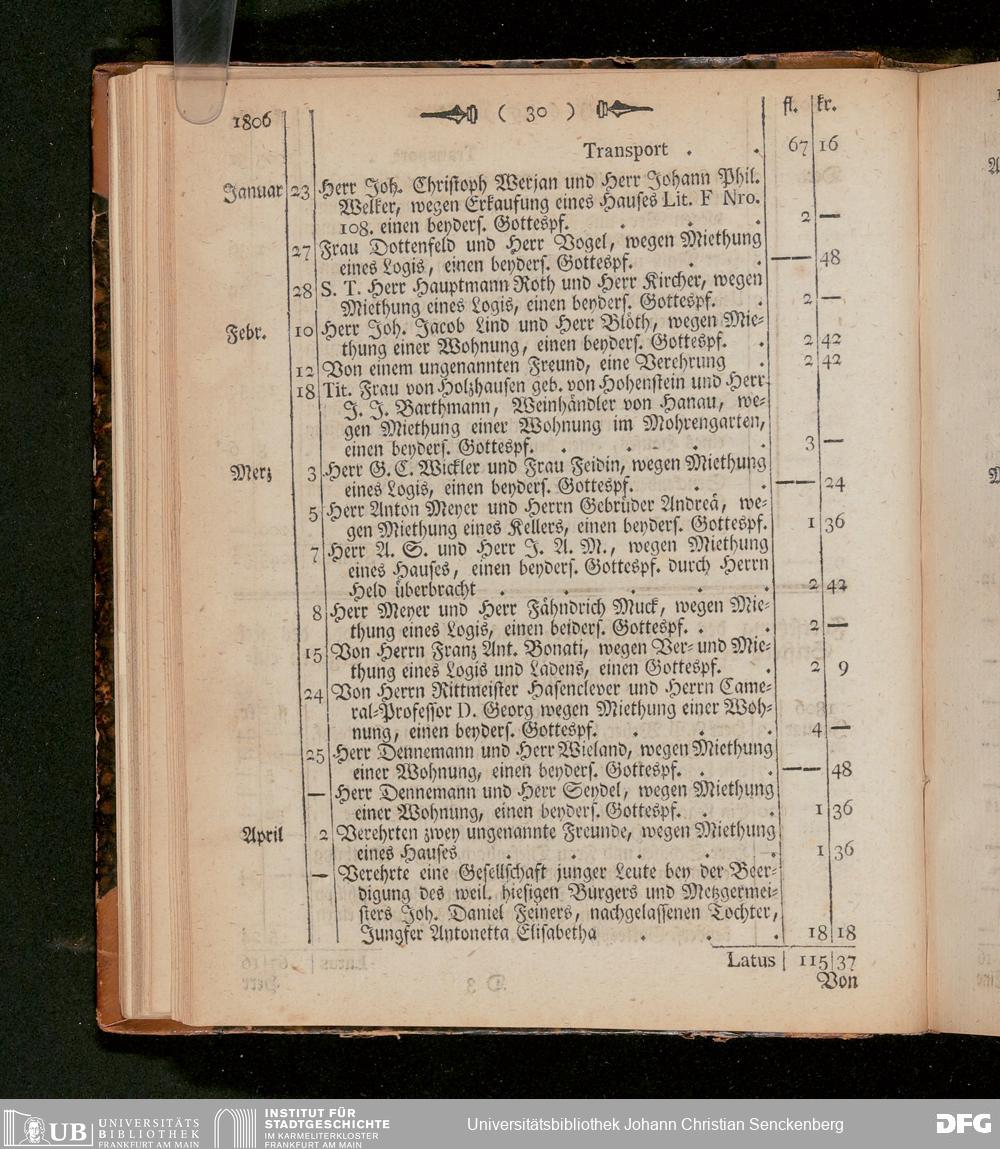 1806 ( 30 ) fl. kr.
Transport . . 67 16
Januar 23 Herr Joh. Christoph Werjan und Herr Johann Phil.
Welker, wegen Erkaufung eines Hauses Lit. F Nro.
108. einen beyders. Gottespf. . . . 2 —
27 Frau Dottenfeld und Herr Vogel, wegen Miethung
eines Logis, einen beyders. Gottespf. . . — 48
28 S. T. Herr Hauptmann Roth und Herr Kircher, wegen
Miethung eines Logis, einen beyders. Gottespf. . 2 —
Febr. 10 Herr Joh. Jacob Lind und Herr Blöth, wegen Mie-
thung einer Wohnung, einen beyders. Gottespf. . 2 42
12 Von einem ungenannten Freund, eine Verehrung . 2 42
18 Tit. Frau von Holzhausen geb. von Hohenstein und Herr
J. J. Barthmann, Weinhändler von Hanau, we-
gen Miethung einer Wohnung im Mohrengarten,
einen beyders. Gottespf. . . . . 3 —
Merz 3 Herr G. C. Wickler und Frau Feidin, wegen Miethung
eines Logis, einen beyders. Gottespf. . . — 24
5 Herr Anton Meyer und Herrn Gebrüder Andreä, we-
gen Miethung eines Kellers, einen beyders. Gottespf. 1 36
7 Herr A. S. und Herr J. A. M., wegen Miethung
eines Hauses, einen beyders. Gottespf. durch Herrn
Held überbracht . . . . . 2 42
8 Herr Meyer und Herr Fähndrich Muck, wegen Mie-
thung eines Logis, einen beiders. Gottespf. . . 2 —
15 Von Herrn Franz Ant. Bonati, wegen Ver- und Mie-
thung eines Logis und Ladens, einen Gottespf. . 2 9
24 Von Herrn Rittmeister Hasenclever und Herrn Came-
ral-Professor D. Georg wegen Miethung einer Woh-
nung, einen beyders. Gottespf. . . . 4 —
25 Herr Dennemann und Herr Wieland, wegen Miethung
einer Wohnung, einen beyders. Gottespf. . . — 48
— Herr Dennemann und Herr Seydel, wegen Miethung
einer Wohnung, einen beyders. Gottespf. . . 1 36
April 2 Verehrten zwey ungenannte Freunde, wegen Miethung
eines Hauses . . . . . 1 36
— Verehrte eine Gesellschaft junger Leute bey der Beer-
digung des weil. hiesigen Burgers und Metzgermei-
sters Joh. Daniel Feiners, nachgelassenen Tochter,
Jungfer Antonetta Elisabetha . . . 18 18
Latus 115 37
Von
UB UNIVERSITÄTS
BIBLIOTHEK
FRANKFURT AM MAIN
INSTITUT FÜR
STADTGESCHICHTE
IM KARMELITERKLOSTER
FRANKFURT AM MAIN
Universitätsbibliothek Johann Christian Senckenberg
DFG